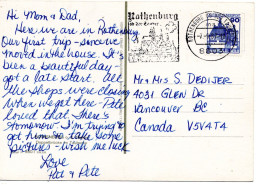 Hi Mom & Dad,
Here we are in Rothenburg
Our first trip - since we
moved in the house. It's
been a beautiful day -
got a late start. All
the shops were closing
when we get here - Pete
loved that. There's
tomorrow. I'm trying to
get him to take some
pictures - wish me luck
Love
Pat & Pete
Rothenburg
ob der Tauber
90
Mr & Mrs S. DEDIJER
4031 GLEN DR
VANCOUVER BC
CANADA V5V4TA